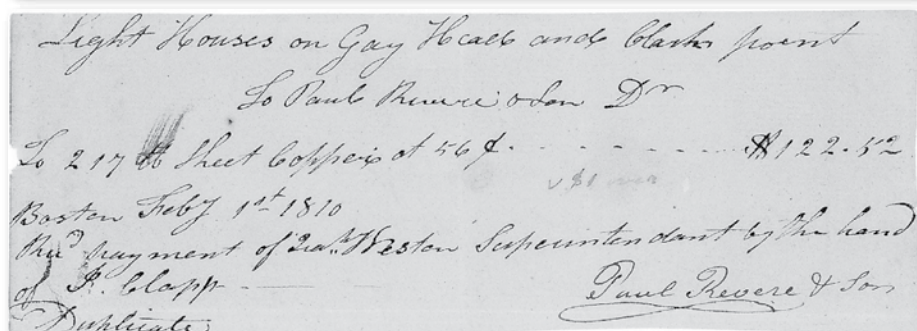 Light Houses on Gay Head and Clarks point
To Paul Revere & Son Dr
To 217 lb Sheet Copper at 56 ¢ - - - - - - - - - $122.52
v $1 over
Boston Feby 1st 1810
Recd payment of Weston Superintendant by the hand
of J. Clapp
Paul Revere & Son
Duplicate